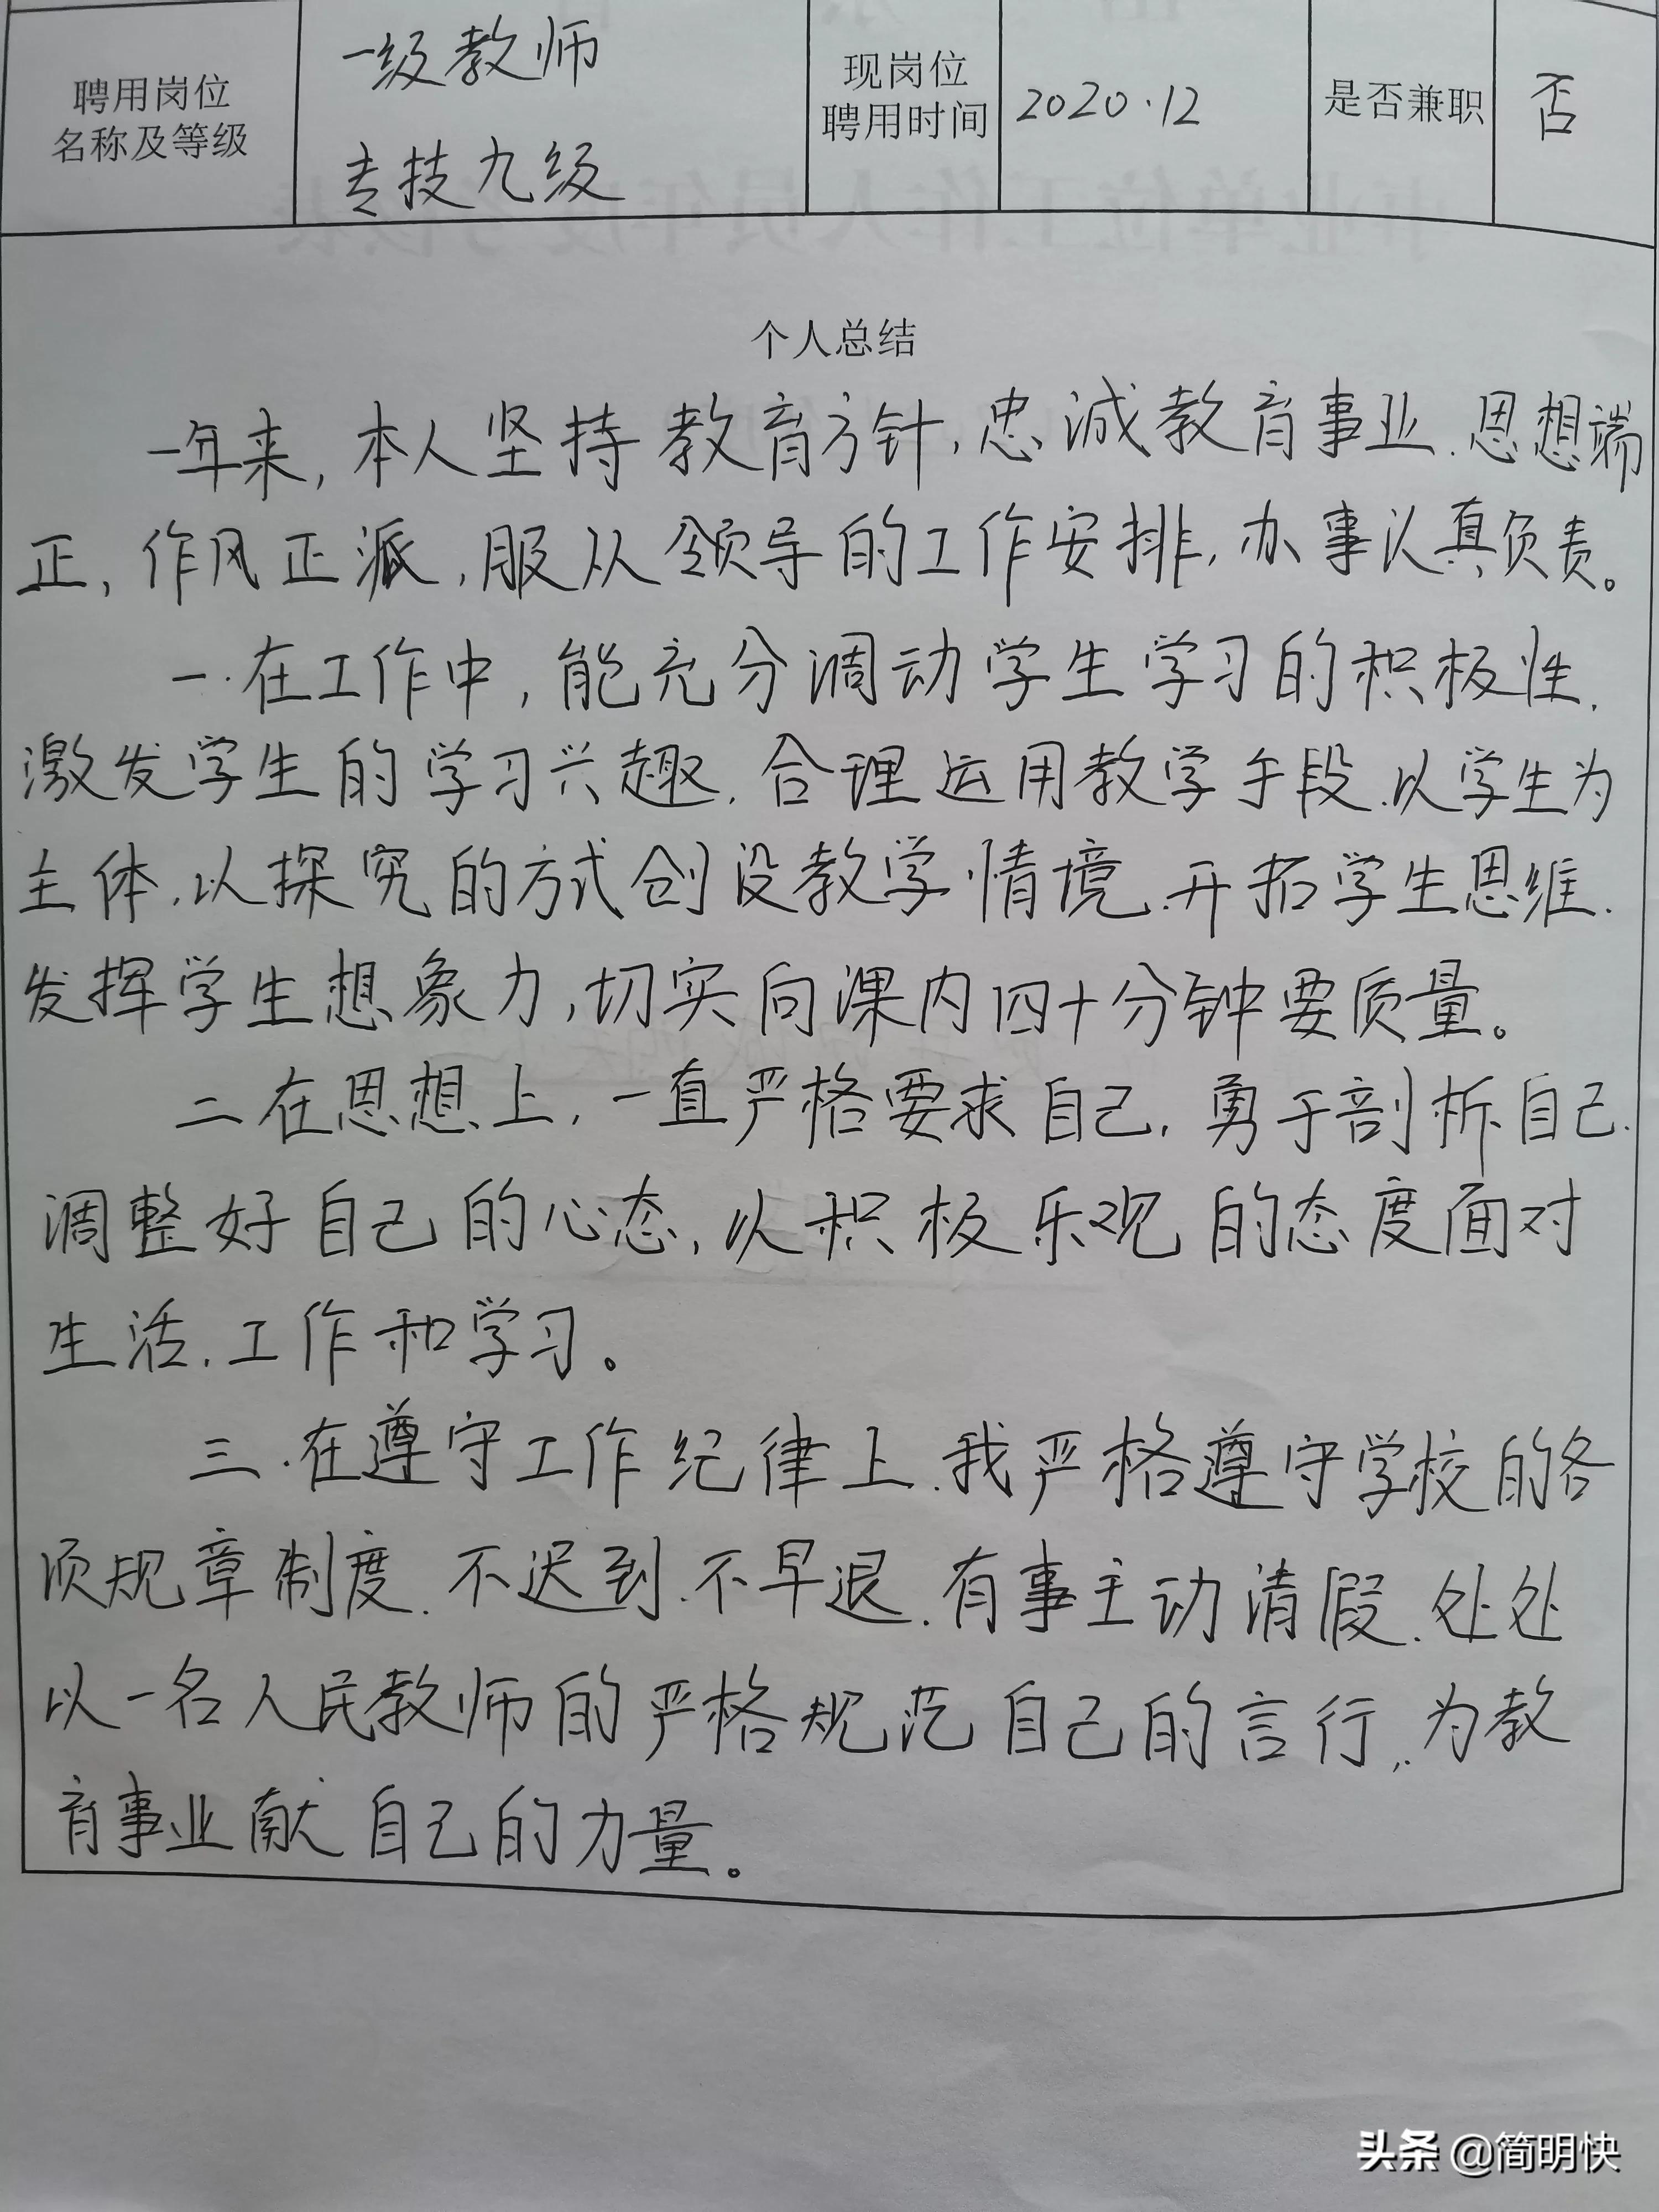 聘用岗位
名称及等级
一级教师
专技九级
现岗位
聘用时间
2020.12
是否兼职
否
个人总结
一年来,本人坚持教育方针,忠诚教育事业.思想端
正,作风正派,服从领导的工作安排,办事认真负责。
一.在工作中,能充分调动学生学习的积极性.
激发学生的学习兴趣.合理运用教学手段.以学生为
主体.以探究的方式创设教学情境.开拓学生思维.
发挥学生想象力,切实向课内四十分钟要质量。
二在思想上,一直严格要求自己,勇于剖析自己.
调整好自己的心态,以积极乐观的态度面对
生活.工作和学习。
三.在遵守工作纪律上.我严格遵守学校的各
项规章制度.不迟到.不早退.有事主动请假.处处
以一名人民教师的严格规范自己的言行,为教
育事业献自己的力量。
头条 @简明快